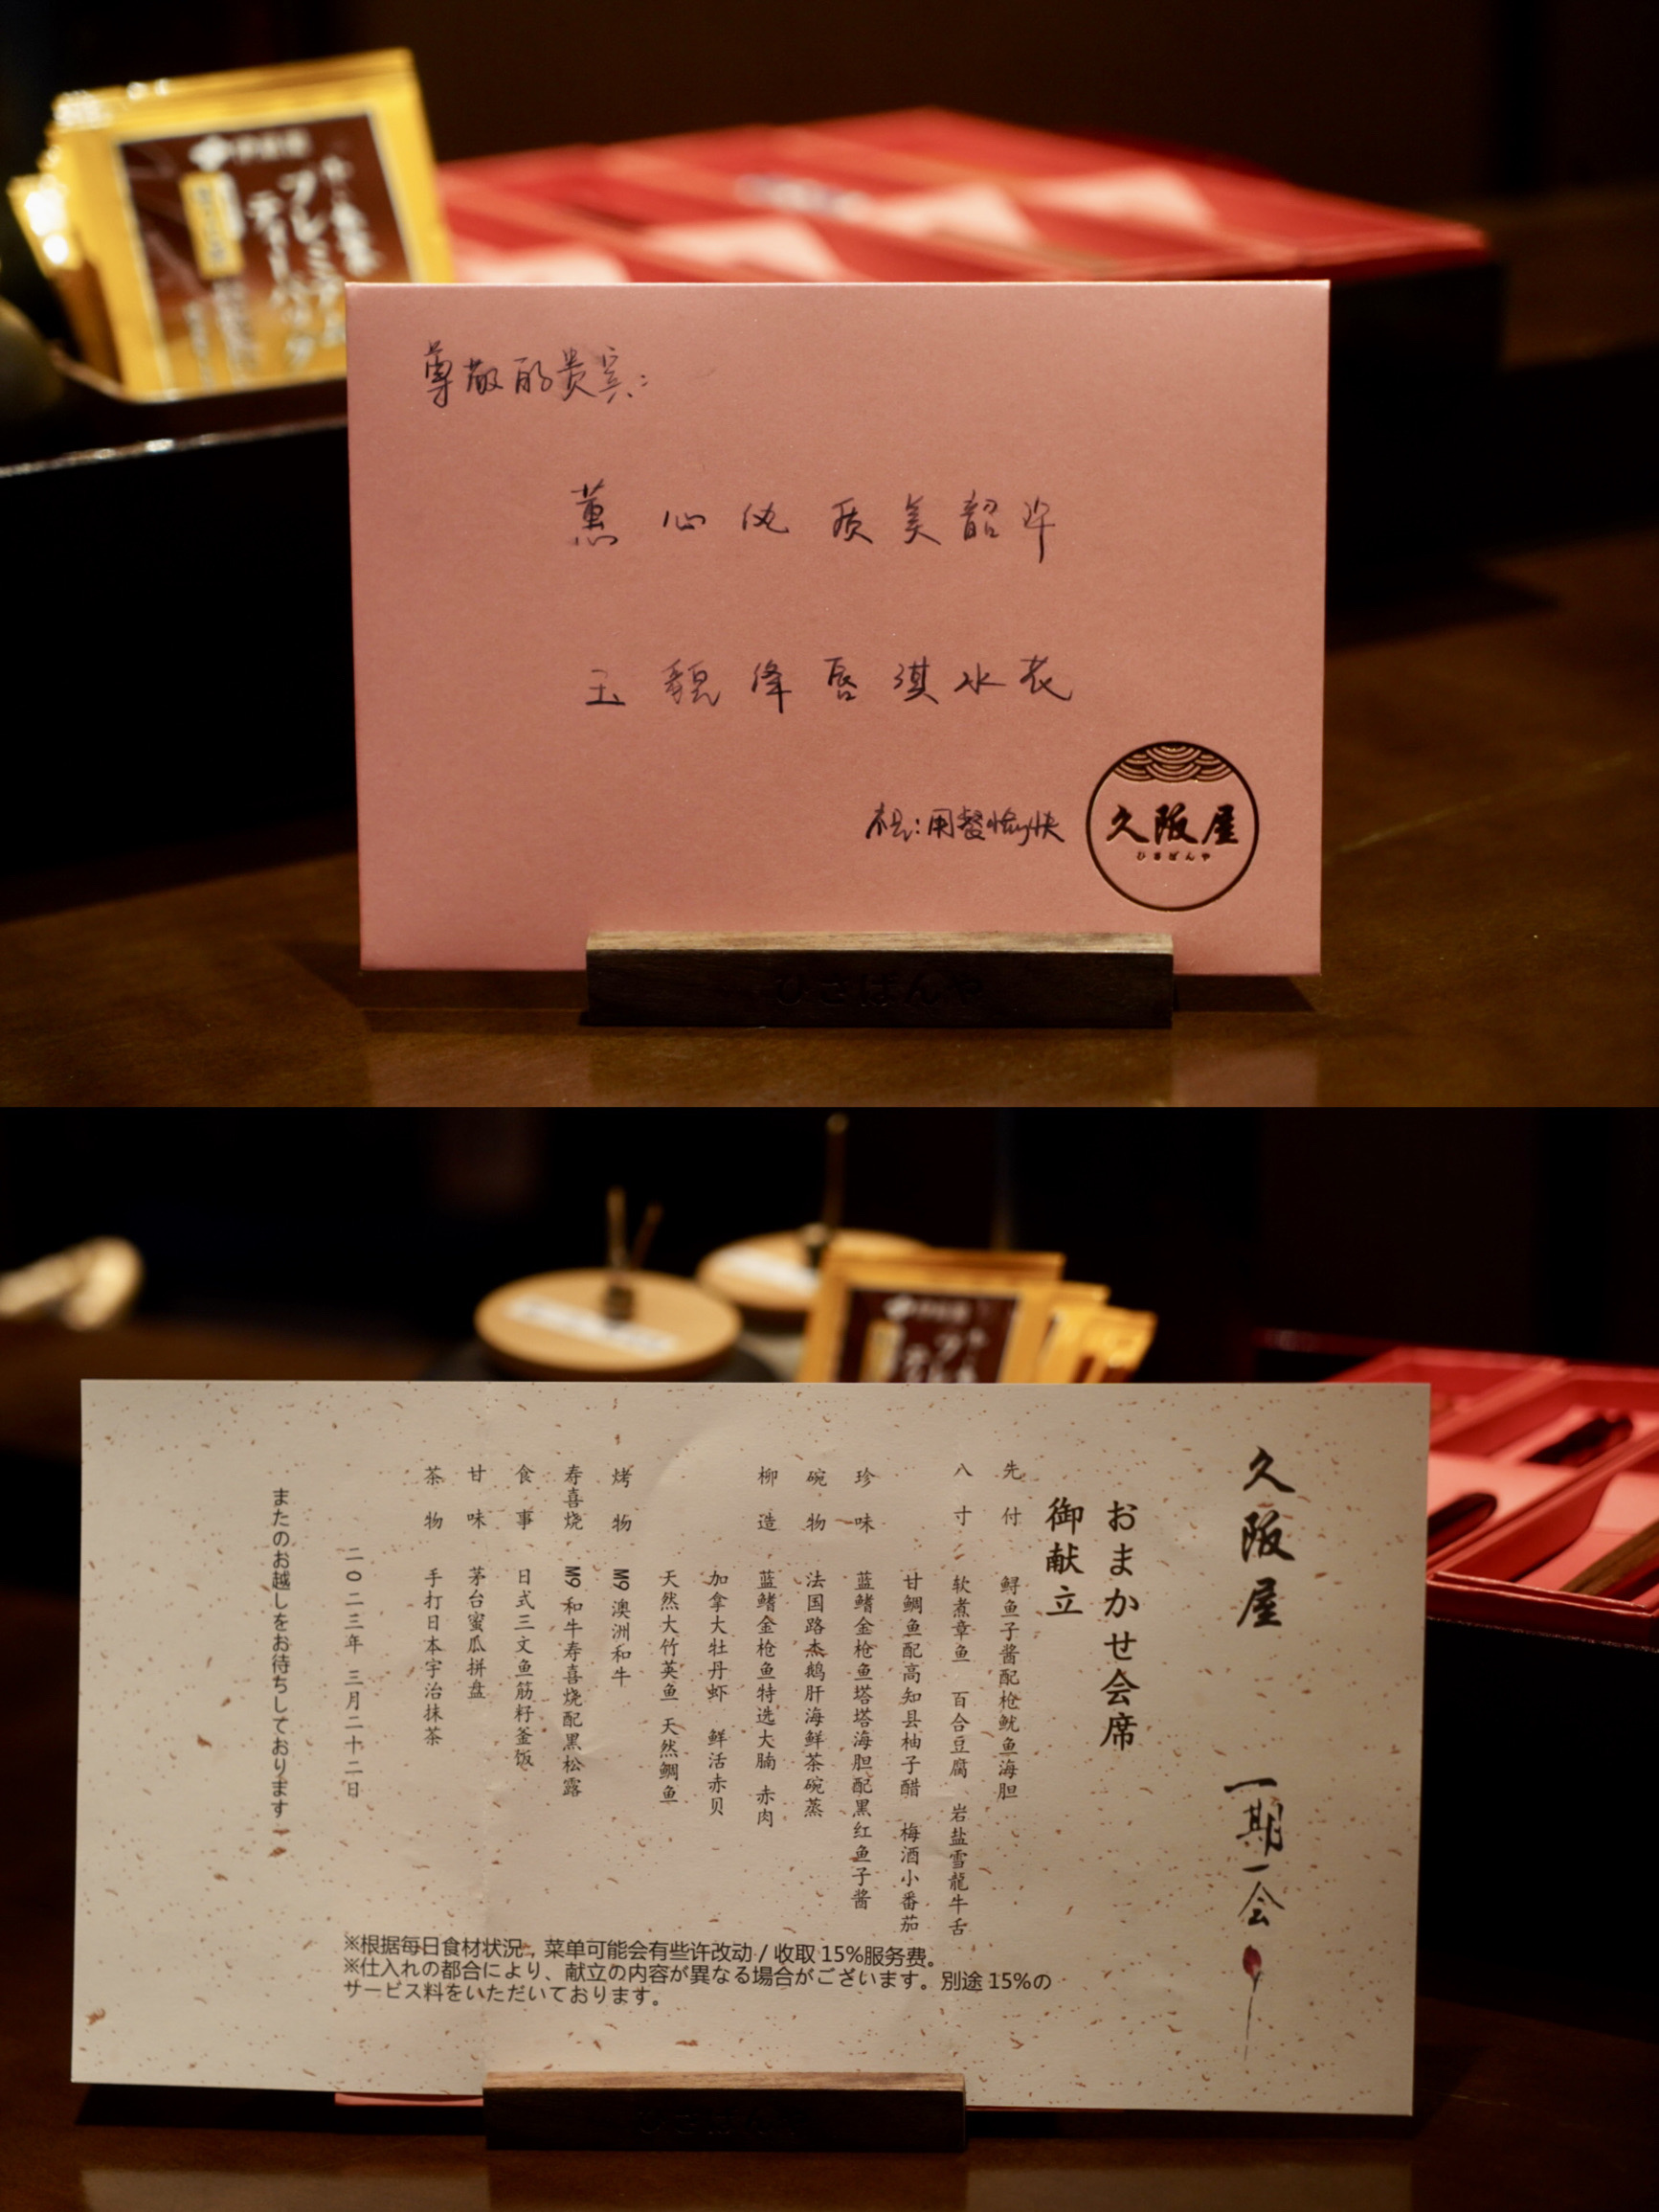 尊敬的贵宾:
蕙心纨质美韶华
玉貌绛唇淇水花
祝:用餐愉快
久阪屋
ひさばんや
ひさばんや
久阪屋 一期一会
おまかせ会席
御献立
先付 鲟鱼子酱配枪鱿鱼海胆
八寸 软煮章鱼 百合豆腐 岩盐雪龍牛舌
甘鲷鱼配高知县柚子醋 梅酒小番茄
珍味 蓝鳍金枪鱼塔塔海胆配黑红鱼子酱
碗物 法国路杰鹅肝海鲜茶碗蒸
柳造 蓝鳍金枪鱼特选大腩 赤肉
加拿大牡丹虾 鲜活赤贝
天然大竹英鱼 天然鲷鱼
烤物 M9 澳洲和牛
寿喜烧 M9 和牛寿喜烧配黑松露
食事 日式三文鱼筋籽釜饭
甘味 茅台蜜瓜拼盘
茶物 手打日本宇治抹茶
二〇二三年 三月二十二日
またのお越しをお待ちしております
※根据每日食材状况，菜单可能会有些许改动 / 收取 15%服务费。
※仕入れの都合により、献立の内容が異なる場合がございます。別途 15%の
サービス料をいただいております。